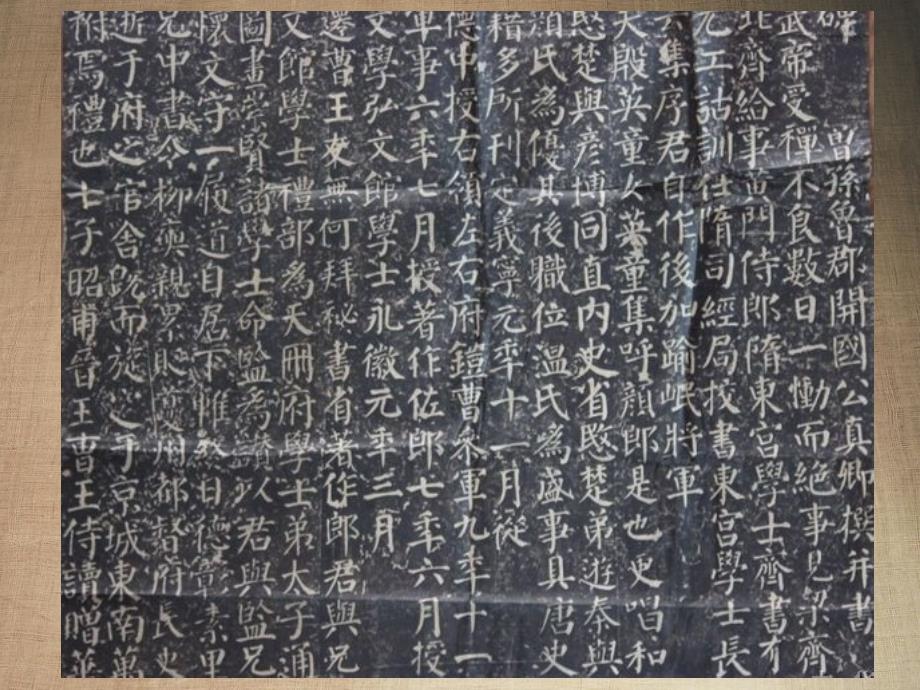 碑 曾孫魯郡開國公真卿撰并書
武帝受禪不食數日一慟而絕事見梁齊
北齊給事黃門侍郎隋東宮學士齊書有
尤工詁訓仕隋司經局校書東宮學士長
集序君自作後加踰岷將軍
夫殷英童女英童集呼顏郎是也更唱和
愍楚與彥博同直內史省愍楚弟遊秦與
顏氏為優其後職位溫氏為盛事具唐史
籍多所刊定義寧元年十一月從
德中授右領左右府鎧曹參軍九年十一
軍事六年七月授著作佐郎七年六月授
文學弘文館學士永徽元年三月
遷曹王友無何拜祕書省著作郎君與兄
文館學士禮部為天冊府學士弟太子通
圖畫崇賢諸學士命監為讚以君與監兄
懷文守一履道自居下帷終日德彰素里
兄中書令柳奭親累貶夔州都督府長史
逝于府之官舍既而旋窆于京城東南萬
祔焉禮也七子昭甫晉王曹王侍讀贈華